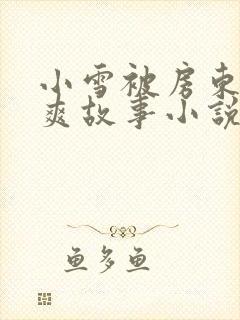 小雪被房东
爽故事小说
鱼多鱼